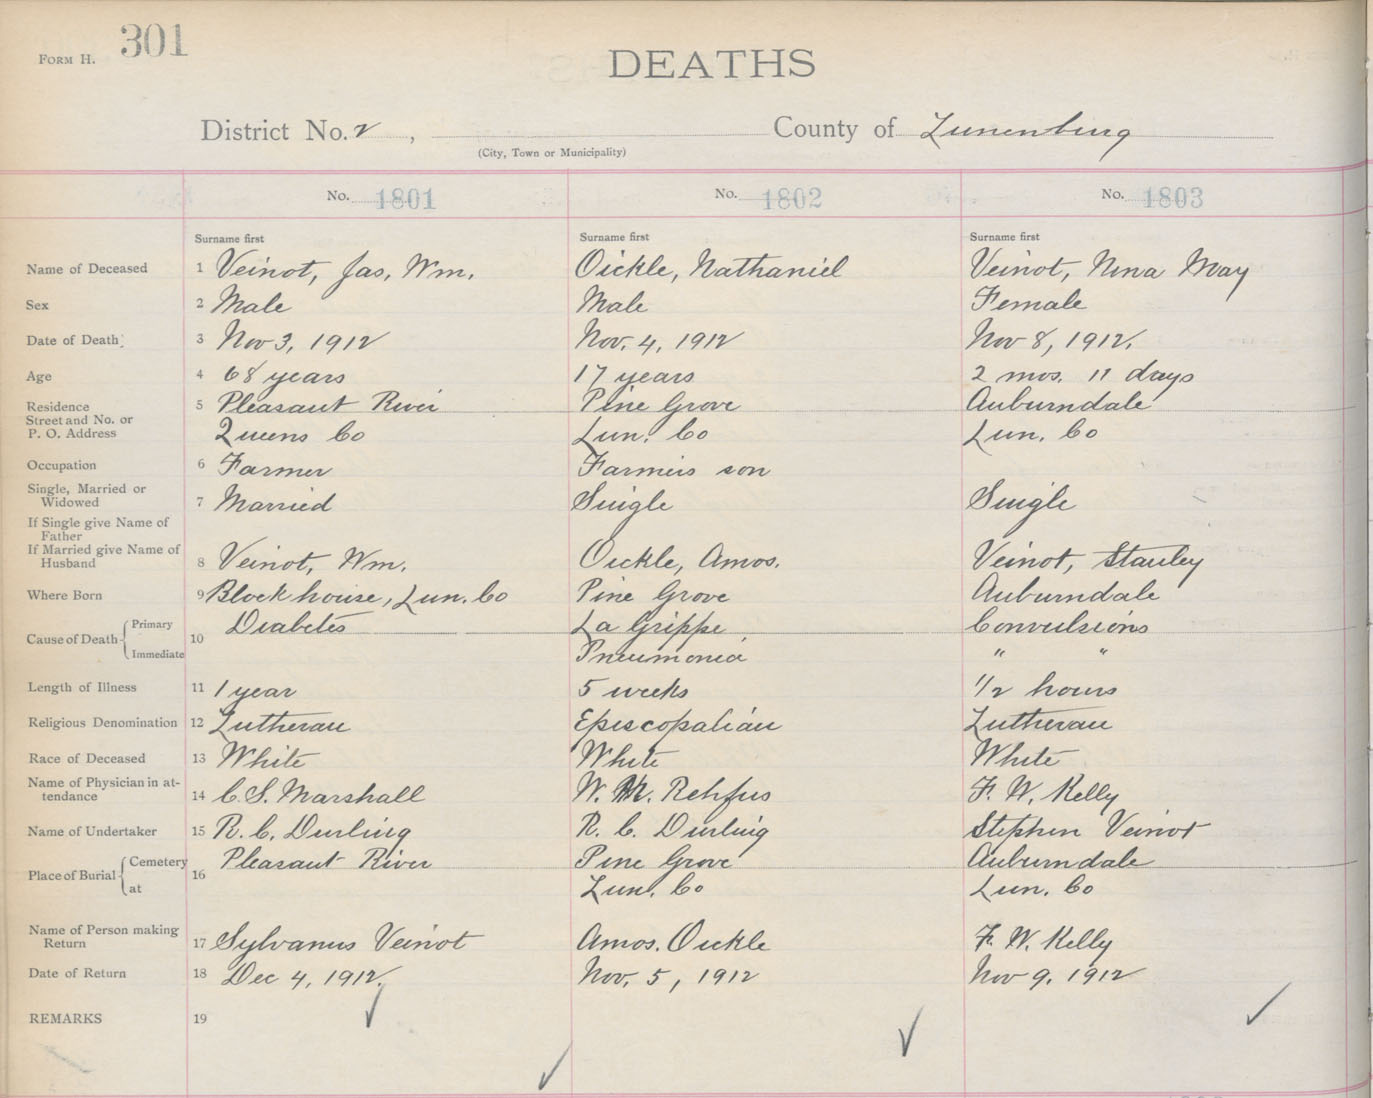 FORM H. 301
DEATHS
District No. 2 , County of Lunenburg
(City, Town or Municipality)
No. 1801 No. 1802 No. 1803
Surname first Surname first Surname first
Name of Deceased 1 Veinot, Jas, Wm. Oickle, Nathaniel Veinot, Nina May
Sex 2 Male Male Female
Date of Death 3 Nov 3, 1912 Nov. 4, 1912 Nov 8, 1912.
Age 4 68 years 17 years 2 mos. 11 days
Residence 5 Pleasant River Pine Grove Auburndale
Street and No. or
P. O. Address Queens Co Lun. Co Lun. Co
Occupation 6 Farmer Farmers son
Single, Married or
Widowed 7 Married Single Single
If Single give Name of
Father
If Married give Name of
Husband 8 Veinot, Wm. Oickle, Amos. Veinot, Stanley
Where Born 9 Block house, Lun. Co Pine Grove Auburndale
Cause of Death Primary 10 Diabetes La Grippe Convulsions
Immediate Pneumonia " "
Length of Illness 11 1 year 5 weeks 1/2 hours
Religious Denomination 12 Lutheran Episcopalian Lutheran
Race of Deceased 13 White White White
Name of Physician in at-
tendance 14 C. S. Marshall W. M. Rehfus F. W. Kelly
Name of Undertaker 15 R. C. Durling R. C. Durling Stephen Veinot
Place of Burial Cemetery 16 Pleasant River Pine Grove Auburndale
at Lun. Co Lun. Co
Name of Person making
Return 17 Sylvanus Veinot Amos. Oickle F. W. Kelly
Date of Return 18 Dec 4, 1912. Nov. 5, 1912 Nov 9, 1912
REMARKS 19